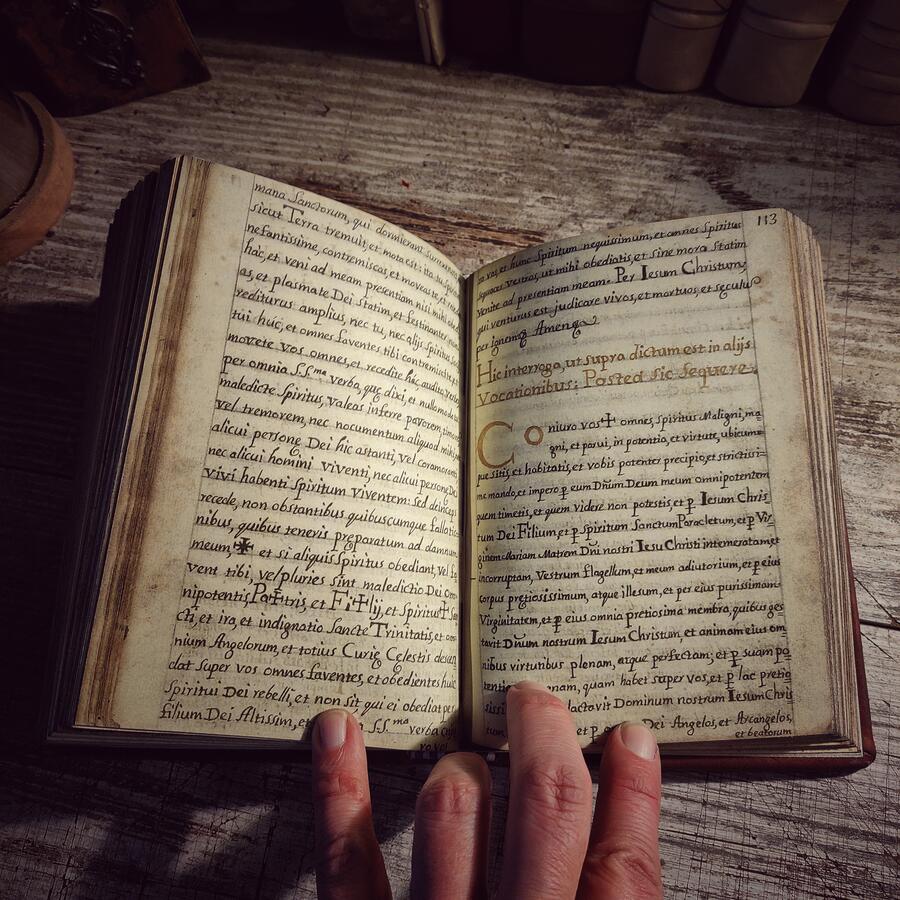 mana Sanctorum, qui dormierant
sicut Terra tremuit, et mota est: ita
nefantissime, contremiscas, et movearis, et
hac, et veni ad meam presentiam nisi mihi
as, et plasmate Dei statim, et festinanter
rediturus amplius, nec tu, nec alijs Spiritus
tui huic, et omnes faventes tibi contremiscite, et
movete vos omnes, et recedite hac audito,
per omnia S.S.ma verba, quę dixi, et nullo modo
maledicte Spiritus, valeas inferre pavorem, timorem
vel tremorem, nec nocumentum aliquod mihi,
alicui personę Dei hic astanti, vel commoranti
nec alicui homini viventi, nec alicui personę Dei
vivi habenti Spiritum viventem: Sed deinceps
recede, non obstantibus quibuscumque fallacijs
nibus, quibus teneris preparatum ad damnum
meum ✠ et si aliquis Spiritus obediant, vel
vent tibi, vel pluries sint maledictio Dei Om
nipotentis, Pa✝tris, et Fi✝lij, et Spiritus✝ San
cti, et ira, et indignatio Sancte Trinitatis, et om
nium Angelorum, et totius Curię Cęlestis
dat super vos omnes faventes, et obedientes huic
Spiritui Dei rebelli, et non sit qui ei obediat per
filium Dei Altissim, et S.S.ma verba
113
vas, et hunc Spiritum nequissimum, et omnes Spiritus
vestros, ut mihi obediatis, et sine mora Statim
venite ad presentiam meam. Per Iesum Christum,
qui venturus est judicare vivos, et mortuos, et sęculū
per ignem. Amen.
Hic interroga, ut supra dictum est in alijs
Vocationibus: Postea sic sequere.
Coniuro vos ✝ omnes, Spiritus Maligni, ma
gni, et parui, in potentia, et virtute, ubicumq
que sitis, et habitatis, et vobis potenter precipio, et strictissi=
me mando, et impero p eum Dn̄um Deum meum omnipotentem
quem timetis, et quem videre non potestis, et p Iesum Chris
tum Dei Filium, et p Spiritum Sanctum Paracletum, et p Vir
ginem Mariam Matrem Dn̄i nostri Iesu Christi intemeratam et
incorruptam, Vestrum flagellum, et meum adiutorium, et p eius
corpus pretiosissimum, atque illesum, et per eius purissimam
Virginitatem, et p eius omnia pretiosima membra, quibus ges
tavit Dn̄um nostrum Iesum Christum, et animam eius om
nibus virtutibus plenam, atque perfectam; et p suam po
tentiam, quam habet super vos, et p lac pretio
sissi lactavit Dominum nostrum Iesum Chris
tum, et p Dei Angelos, et Arcangelos,
et beatorum